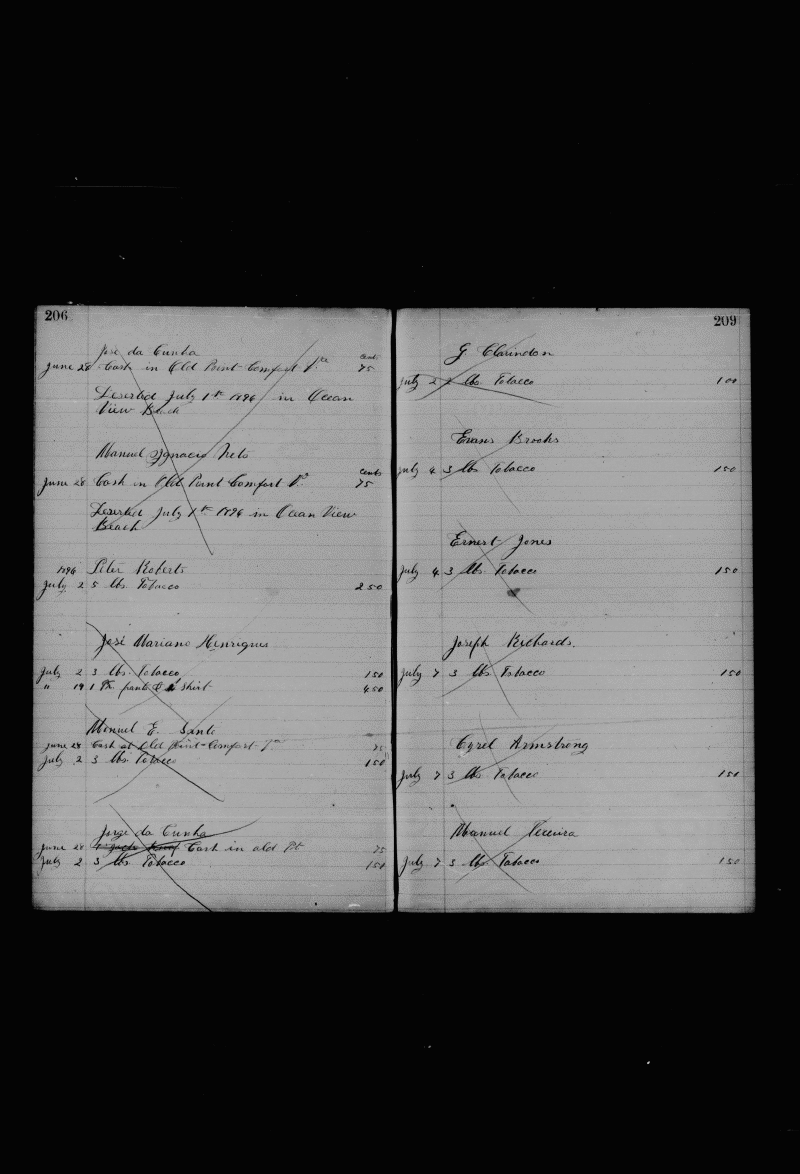 206
José da Cunha
cents
June 28 Cash in Old Point Comfort Va 75
Deserted July 1st 1896 in Ocean
View Beach
Manuel Ignacio Neto
cents
June 28 Cash in Old Point Comfort Va 75
Deserted July 1st 1896 in Ocean View
Beach
1896 Peter Roberts
July 2 5 lbs. Tobacco 2 50
José Mariano Henriques
July 2 3 lbs. Tobacco 1 50
" 19 1 Pr. pants & shirt 4 50
Manuel E. Santo
June 28 Cash at Old Point Comfort Va 75
July 2 3 lbs. Tobacco 1 50
Jorge da Cunha
June 28 Cash in old Pt 75
July 2 3 lbs. Tobacco 1 50
209
G Clarindon
July 2 2 lbs. Tobacco 1 00
Evans Brooks
July 4 3 lbs. Tobacco 1 50
Ernest Jones
July 4 3 lbs. Tobacco 1 50
Joseph Richards.
July 7 3 lbs. Tobacco 1 50
Cyrel Armstrong
July 7 3 lbs. Tobacco 1 50
Manuel Pereira
July 7 3 lbs. Tobacco 1 50